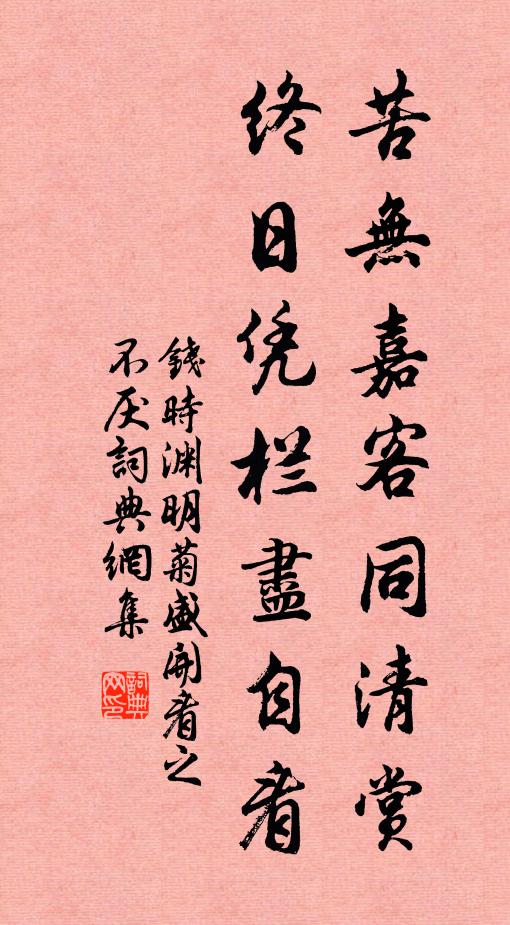 苦無嘉客同清赏
终日凭栏盡自看
錢時渊明菊盛开看之
不厌詞典網集
詞典網印